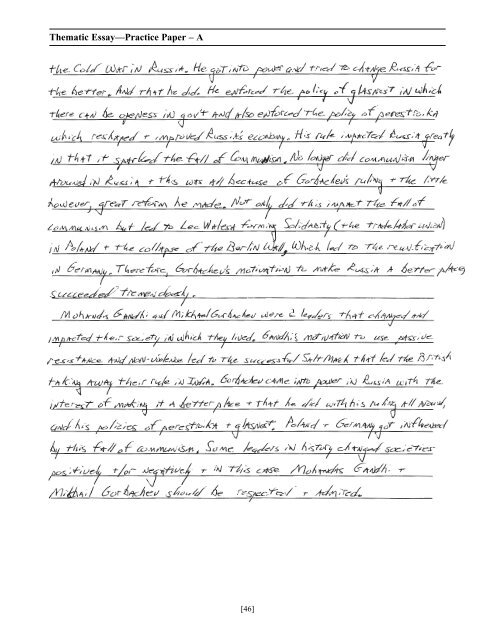 Thematic Essay—Practice Paper – A
the Cold War in Russia. He got into power and tried to change Russia for
the better. And that he did. He enforced the policy of glasnost in which
there can be openess in gov't and also enforced the policy of perestroika
which reshaped + improved Russia's economy. His rule impacted Russia greatly
in that it sparked the fall of Communism. No longer did communism linger
around in Russia + this was all because of Gorbachev's ruling + the little
however, great reform he made. Not only did this impact the fall of
communism but led to Lec Walesa forming Solidarity (the trade labor union)
in Poland + the collapse of the Berlin Wall, which led to the reunification
in Germany. Therefore, Gorbachev's motivation to make Russia a better place,
succeeded tremendously.
Mohandas Gandhi and Mikhail Gorbachev were 2 leaders that changed and
impacted their society in which they lived. Gandhi's motivation to use passive
resistance and non-violence led to the successful Salt March that led the British
taking away their rule in India. Gorbachev came into power in Russia with the
interest of making it a better place + that he did with his ruling all around,
and his policies of perestroika + glasnost. Poland + Germany got influenced
by this fall of communism. Some leaders in history changed societies
positively +/or negatively + in this case Mohandas Gandhi +
Mikhail Gorbachev should be respected + admired.
[46]